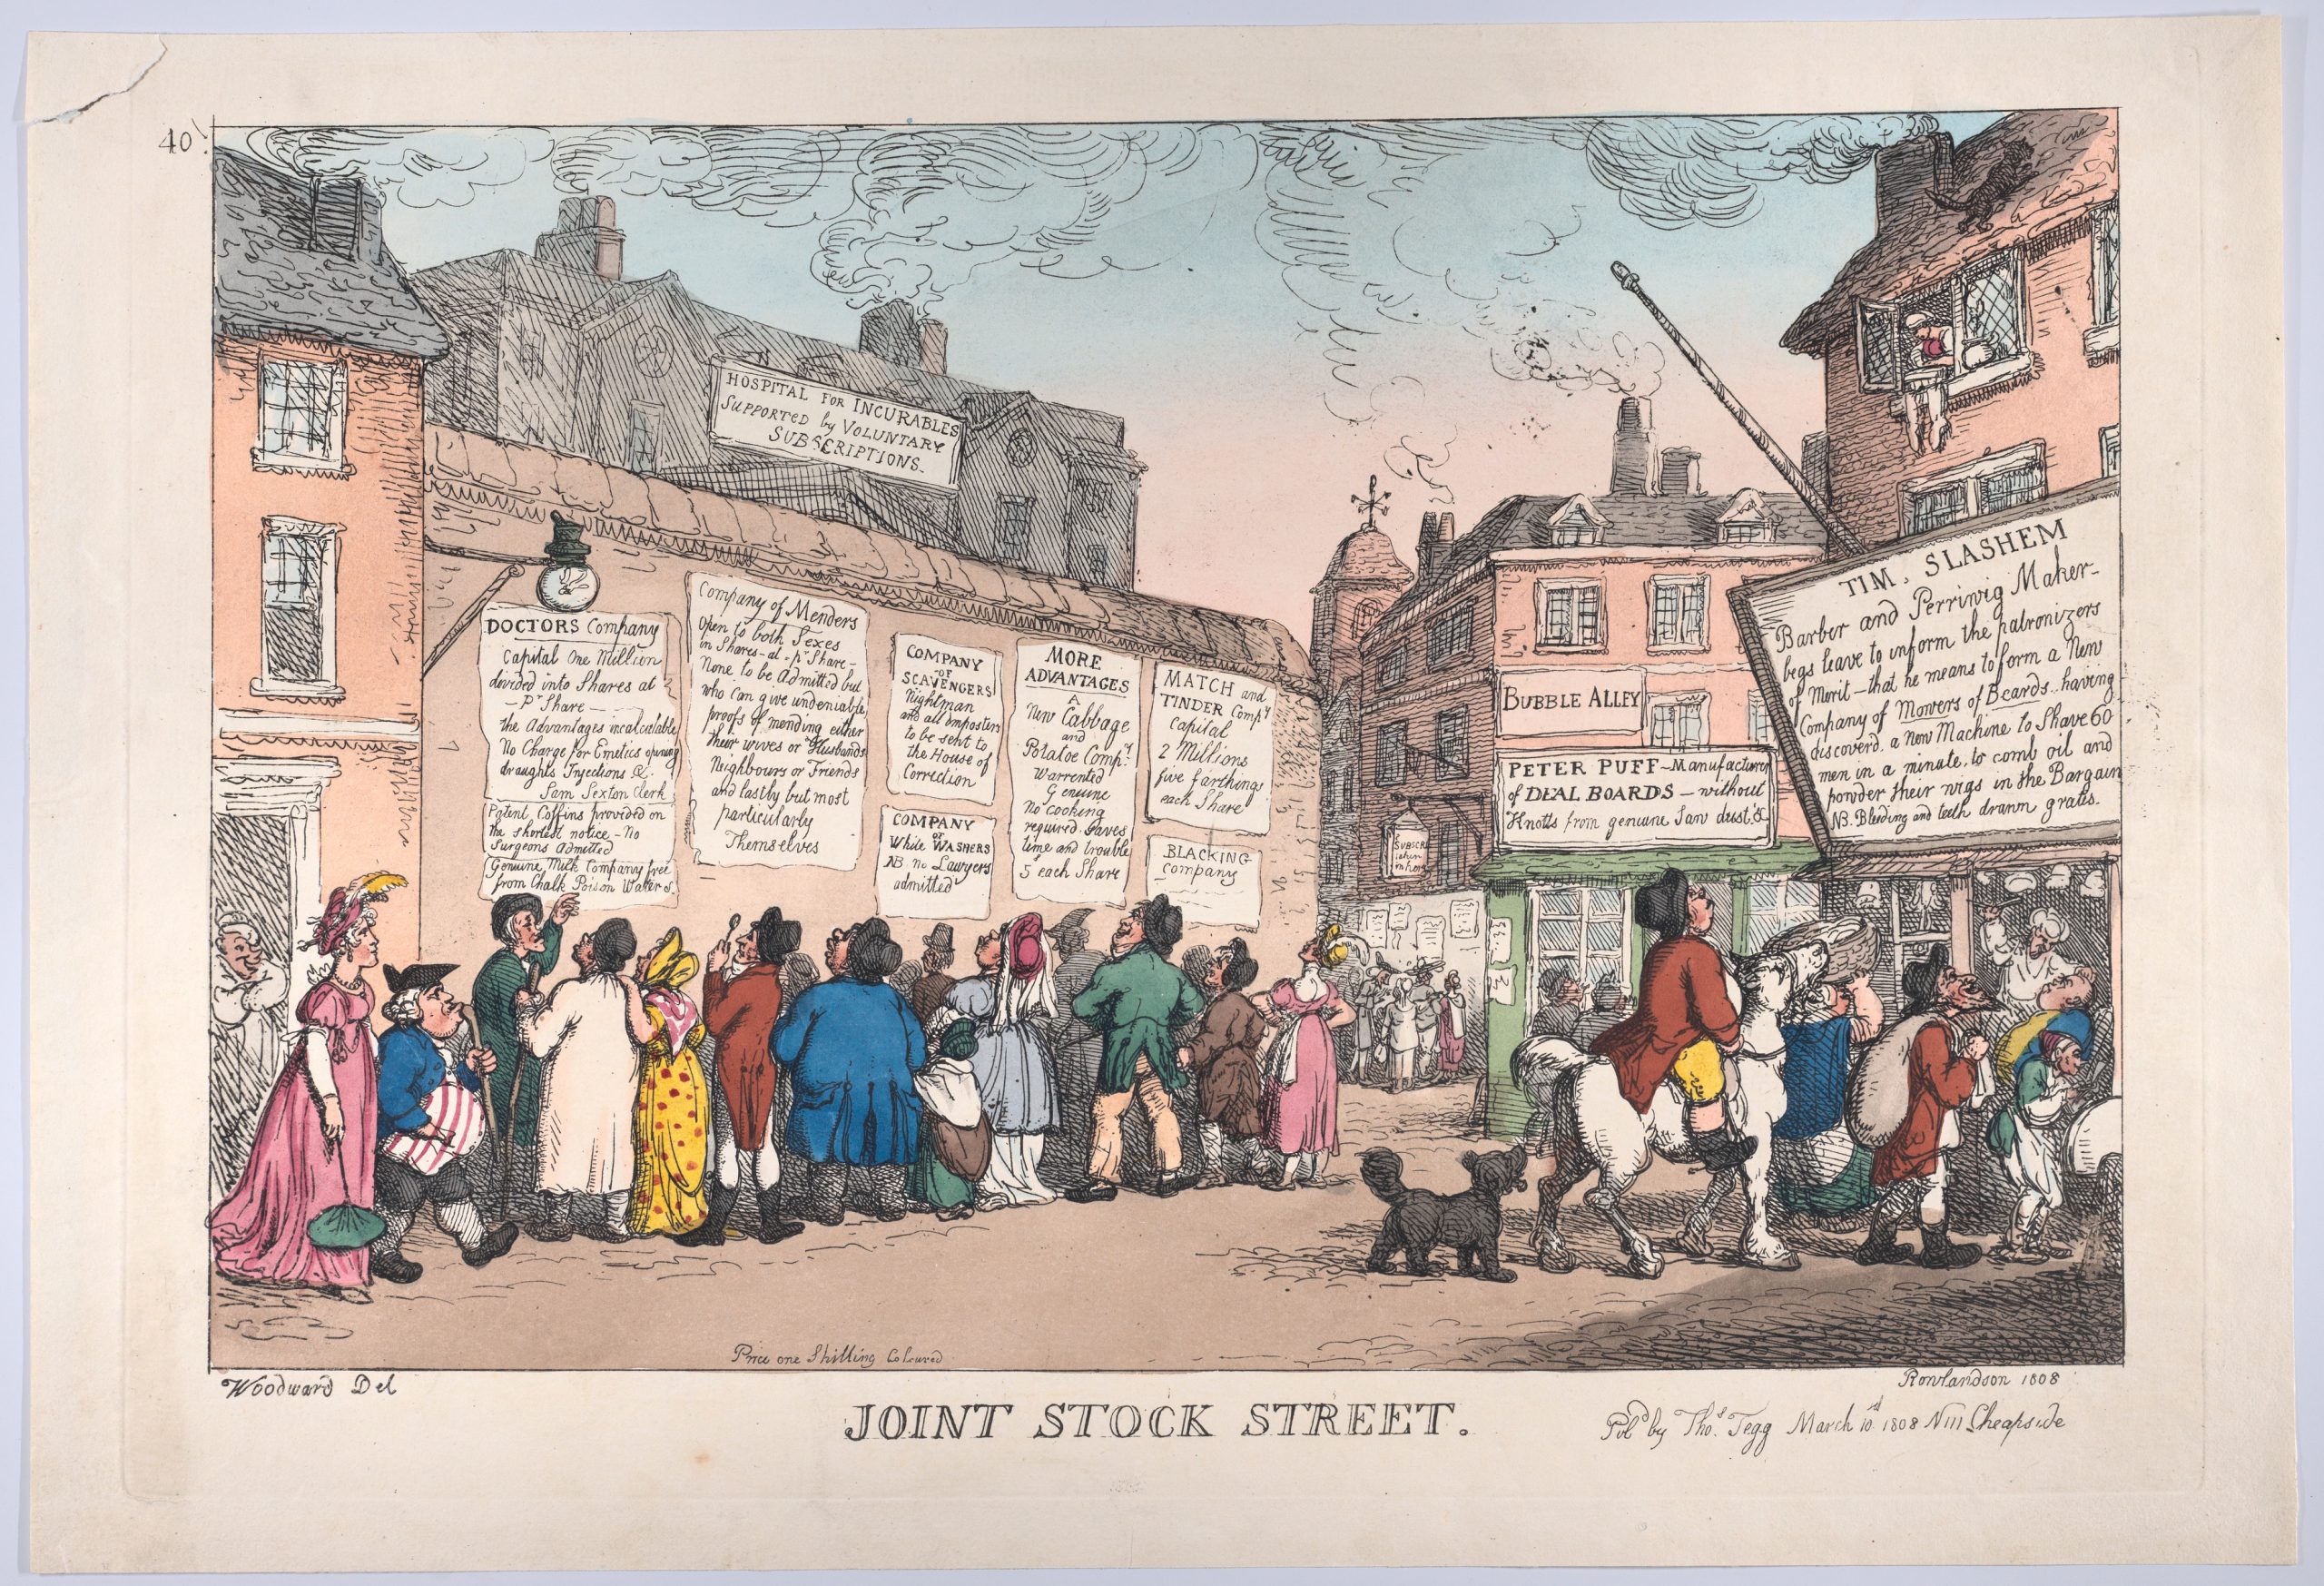 40
HOSPITAL FOR INCURABLES
Supported by VOLUNTARY
SUBSCRIPTIONS.
DOCTORS Company
Capital One Million
devided into Shares at
— Pr Share —
the Advantages incalculable
No Charge for Emetics opening
draughts Injections &c
Sam Sexton Clerk
Patent Coffins provided on
the shortest notice – No
Surgeons Admitted
Genuine Milk Company free
from Chalk Poison Water &c.
Company of Menders
Open to both Sexes
in Shares – at – pr Share –
None to be Admitted but
who can give undeniable
proofs of mending either
their wives or Husbands
Neighbours or Friends
and lastly but most
particularly
Themselves
COMPANY
OF
SCAVENGERS
Nightman
and all Impostors
to be sent to
the House of
Correction
COMPANY
OF
White WASHERS
NB. no Lawyers
admitted
MORE
ADVANTAGES
A
New Cabbage
and
Potatoe Compy.
Warrented
Genuine
No cooking
required. saves
time and trouble
5s each Share
MATCH and
TINDER Compy
Capital
2 Millions
five farthings
each Share
BLACKING
Company
BUBBLE ALLEY
PETER PUFF – Manufacturer
of DEAL BOARDS – without
Knotts from genuine Saw dust &c
TIM. SLASHEM
Barber and Perriwig Maker –
begs leave to inform the patronizers
of Merit – that he means to form a New
Company of Mowers of Beards – having
discoverd a New Machine to Shave 60
men in a minute, to comb oil and
powder their wigs in the Bargain
NB. Bleeding and teeth drawn gratis.
Price one Shilling Coloured
Woodward Del
Rowlandson 1808
JOINT STOCK STREET.
Pubd by Thos. Tegg March 10d 1808 N111 Cheapside